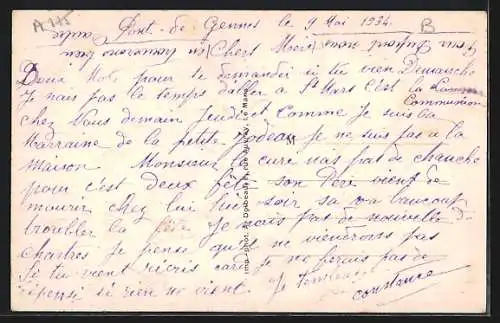 A 775
B
Pont-de Gennes le 9 Mai 1934
Chers Mère
Deux Mots pour te demander si tu vien Dimanche
Je nais pas le temps daller a St Mars C'est la
Communion
chez Nous demain Jeudi et Comme je suis la
Marraine de la petite Jodeau Je ne suis pas a la
maison Monsieur le curé nas pas de chance
pour c'est deux fête son Père vient de
mourir chez lui hier soir sa va baucoup
troubler la fête Je nais pas de nouvelle d
chartres je pense qu'il ne viendrons pas
Si tu vient écris car je ne perais pas de
réponse si rien ne vient. Je t'embrasse
constance
Imp.-phot. A. Dolbeau, rue du Le Mans